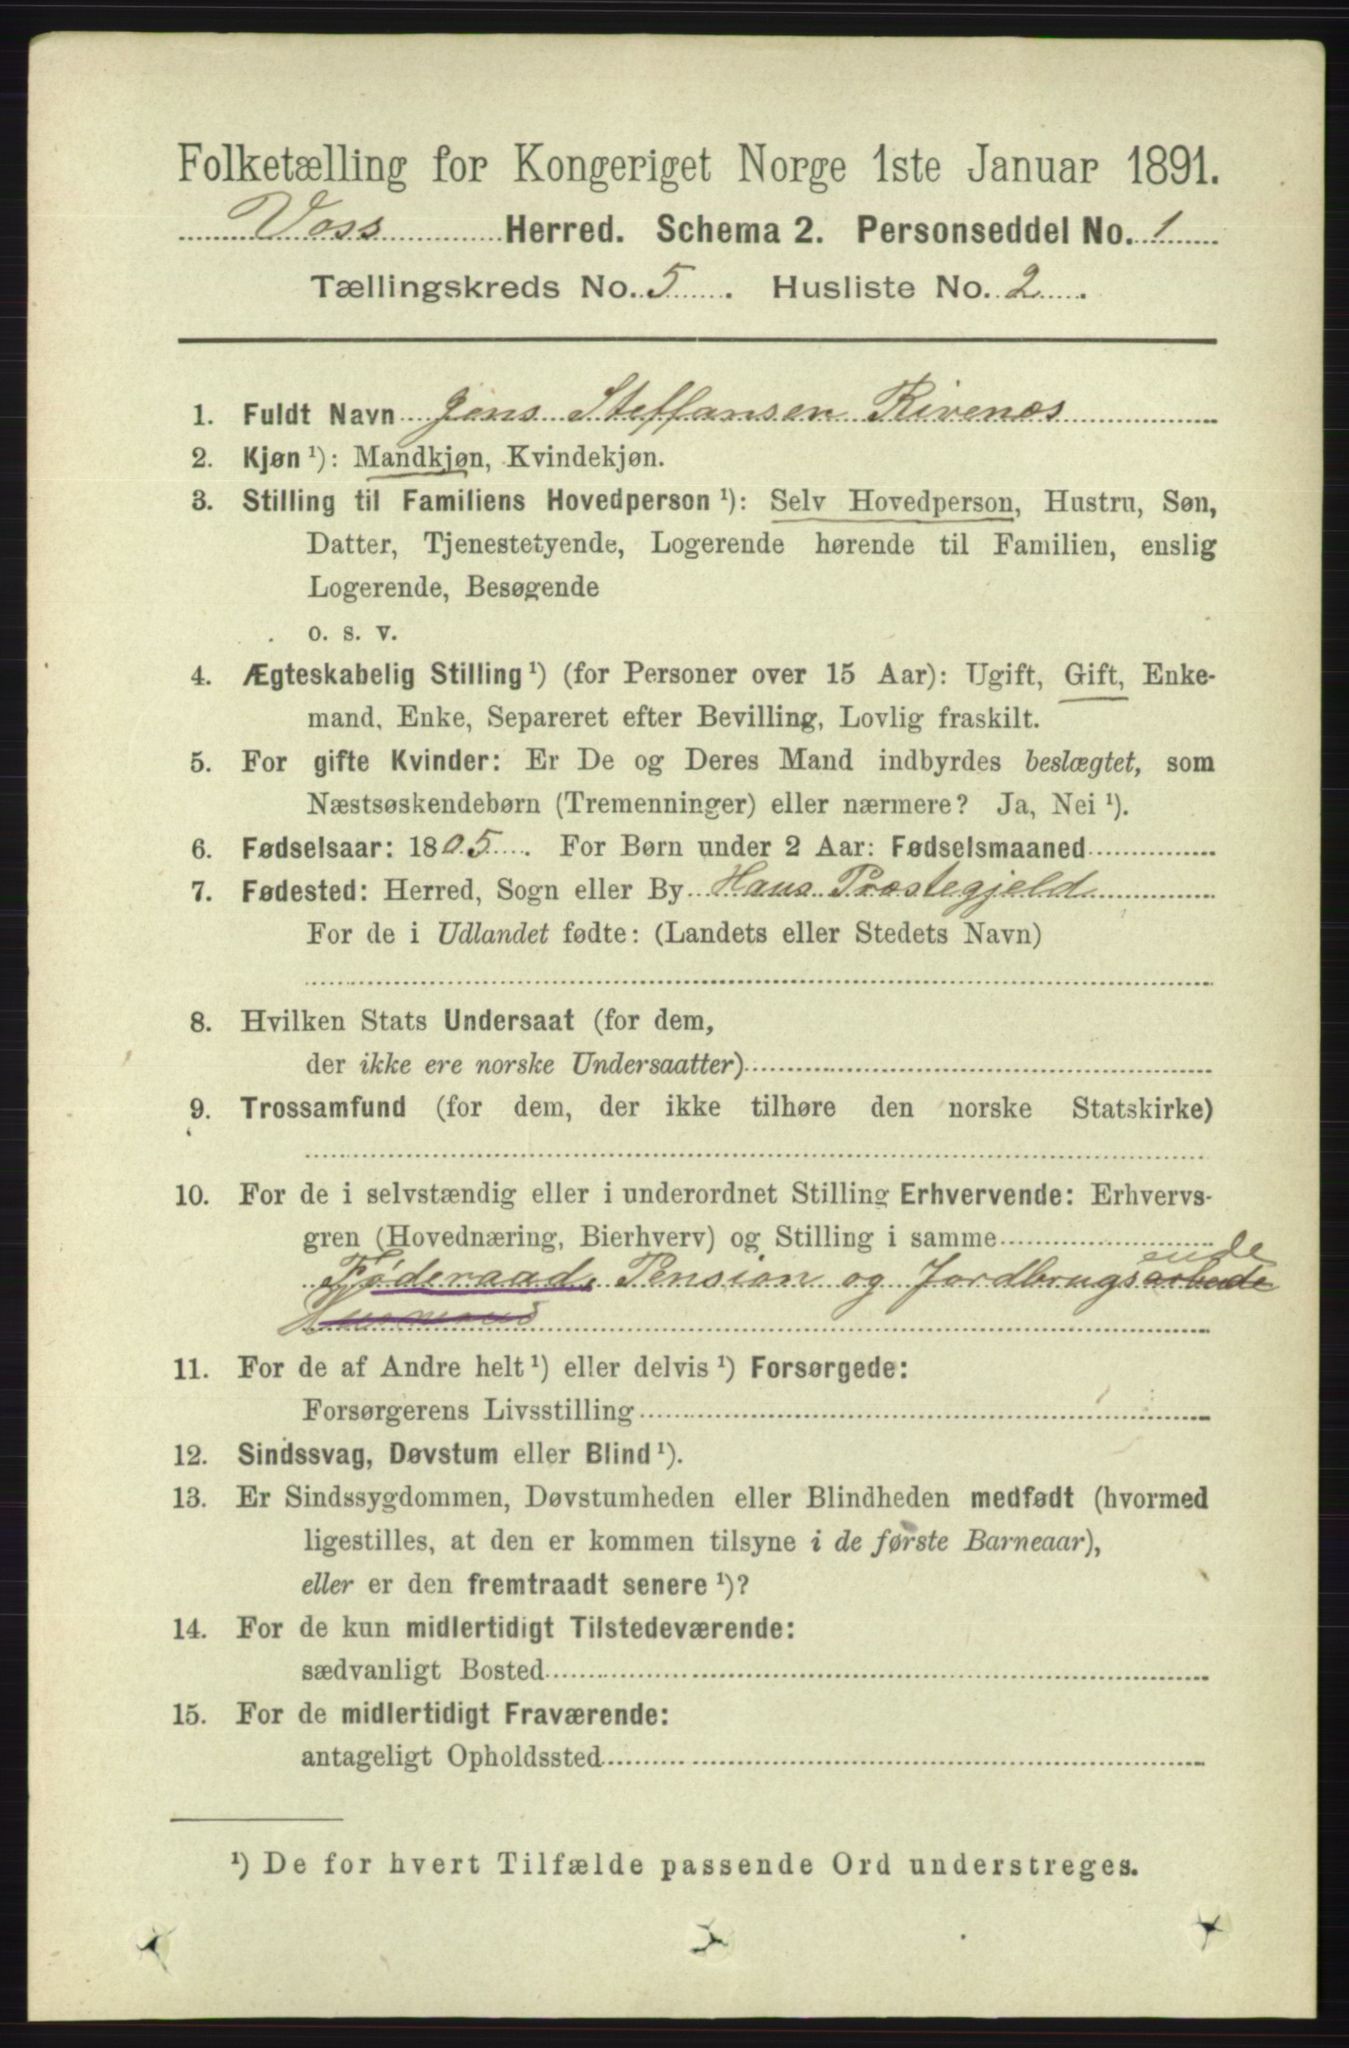 Folketælling for Kongeriget Norge 1ste Januar 1891.
Voss Herred. Schema 2. Personseddel No. 1
Tællingskreds No. 5. Husliste No. 2.
1. Fuldt Navn Jens Steffansen Rivenæs
2. Kjøn ¹): Mandkjøn, Kvindekjøn.
3. Stilling til Familiens Hovedperson ¹): Selv Hovedperson, Hustru, Søn,
Datter, Tjenestetyende, Logerende hørende til Familien, enslig
Logerende, Besøgende
o. s. v.
4. Ægteskabelig Stilling ¹) (for Personer over 15 Aar): Ugift, Gift, Enke-
mand, Enke, Separeret efter Bevilling, Lovlig fraskilt.
5. For gifte Kvinder: Er De og Deres Mand indbyrdes beslægtet, som
Næstsøskendebørn (Tremenninger) eller nærmere? Ja, Nei ¹).
6. Fødselsaar: 1805. For Børn under 2 Aar: Fødselsmaaned
7. Fødested: Herred, Sogn eller By Haus Præstegjeld
For de i Udlandet fødte: (Landets eller Stedets Navn)
8. Hvilken Stats Undersaat (for dem,
der ikke ere norske Undersaatter)
9. Trossamfund (for dem, der ikke tilhøre den norske Statskirke)
10. For de i selvstændig eller i underordnet Stilling Erhvervende: Erhvervs-
gren (Hovednæring, Bierhverv) og Stilling i samme
Føderaad, Pension og Jordbrugsarbeide
11. For de af Andre helt ¹) eller delvis ¹) Forsørgede:
Forsørgerens Livsstilling
12. Sindssvag, Døvstum eller Blind ¹).
13. Er Sindssygdommen, Døvstumheden eller Blindheden medfødt (hvormed
ligestilles, at den er kommen tilsyne i de første Barneaar),
eller er den fremtraadt senere ¹)?
14. For de kun midlertidigt Tilstedeværende:
sædvanligt Bosted
15. For de midlertidigt Fraværende:
antageligt Opholdssted
¹) De for hvert Tilfælde passende Ord understreges.